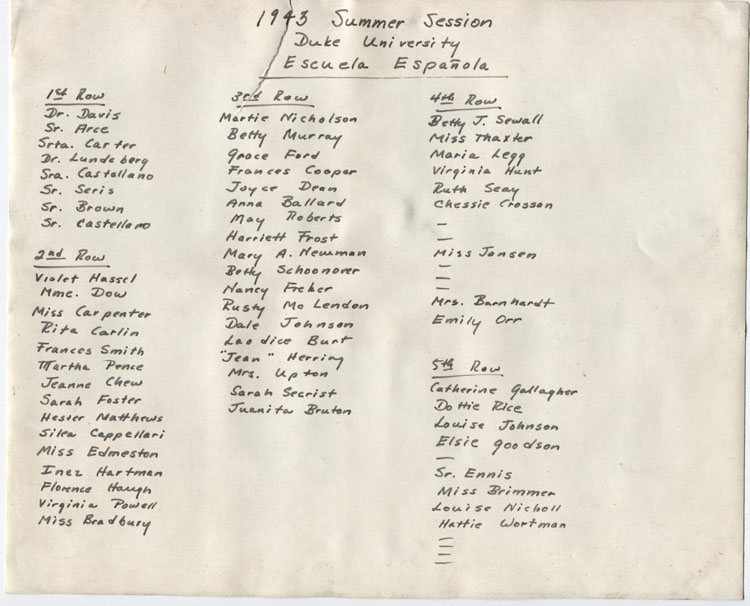 1943 Summer Session
Duke University
Escuela Española
1st Row
Dr. Davis
Sr. Arce
Srta. Carter
Dr. Lundeberg
Sra. Castellano
Sr. Seris
Sr. Brown
Sr. Castellano
2nd Row
Violet Hassel
Mme. Dow
Miss Carpenter
Rita Carlin
Frances Smith
Martha Pence
Jeanne Chew
Sarah Foster
Hester Matthews
Silea Cappellari
Miss Edmeston
Inez Hartman
Florence Haugh
Virginia Powell
Miss Bradbury
3rd Row
Martie Nicholson
Betty Murray
Grace Ford
Frances Cooper
Joyce Dean
Anna Ballard
May Roberts
Harriett Frost
Mary A. Newman
Betty Schoonover
Nancy Freher
Rusty Mc Lendon
Dale Johnson
Laodice Burt
"Jean" Herring
Mrs. Upton
Sarah Secrist
Juanita Bruton
4th Row
Betty J. Sewall
Miss Thaxter
Maria Legg
Virginia Hunt
Ruth Seay
Chessie Crosson
—
—
Miss Jensen
—
—
—
Mrs. Barnhardt
Emily Orr
5th Row
Catherine Gallagher
Dottie Rice
Louise Johnson
Elsie Goodson
—
Sr. Ennis
Miss Brimmer
Louise Nicholl
Hattie Wortman
—
—
—
—